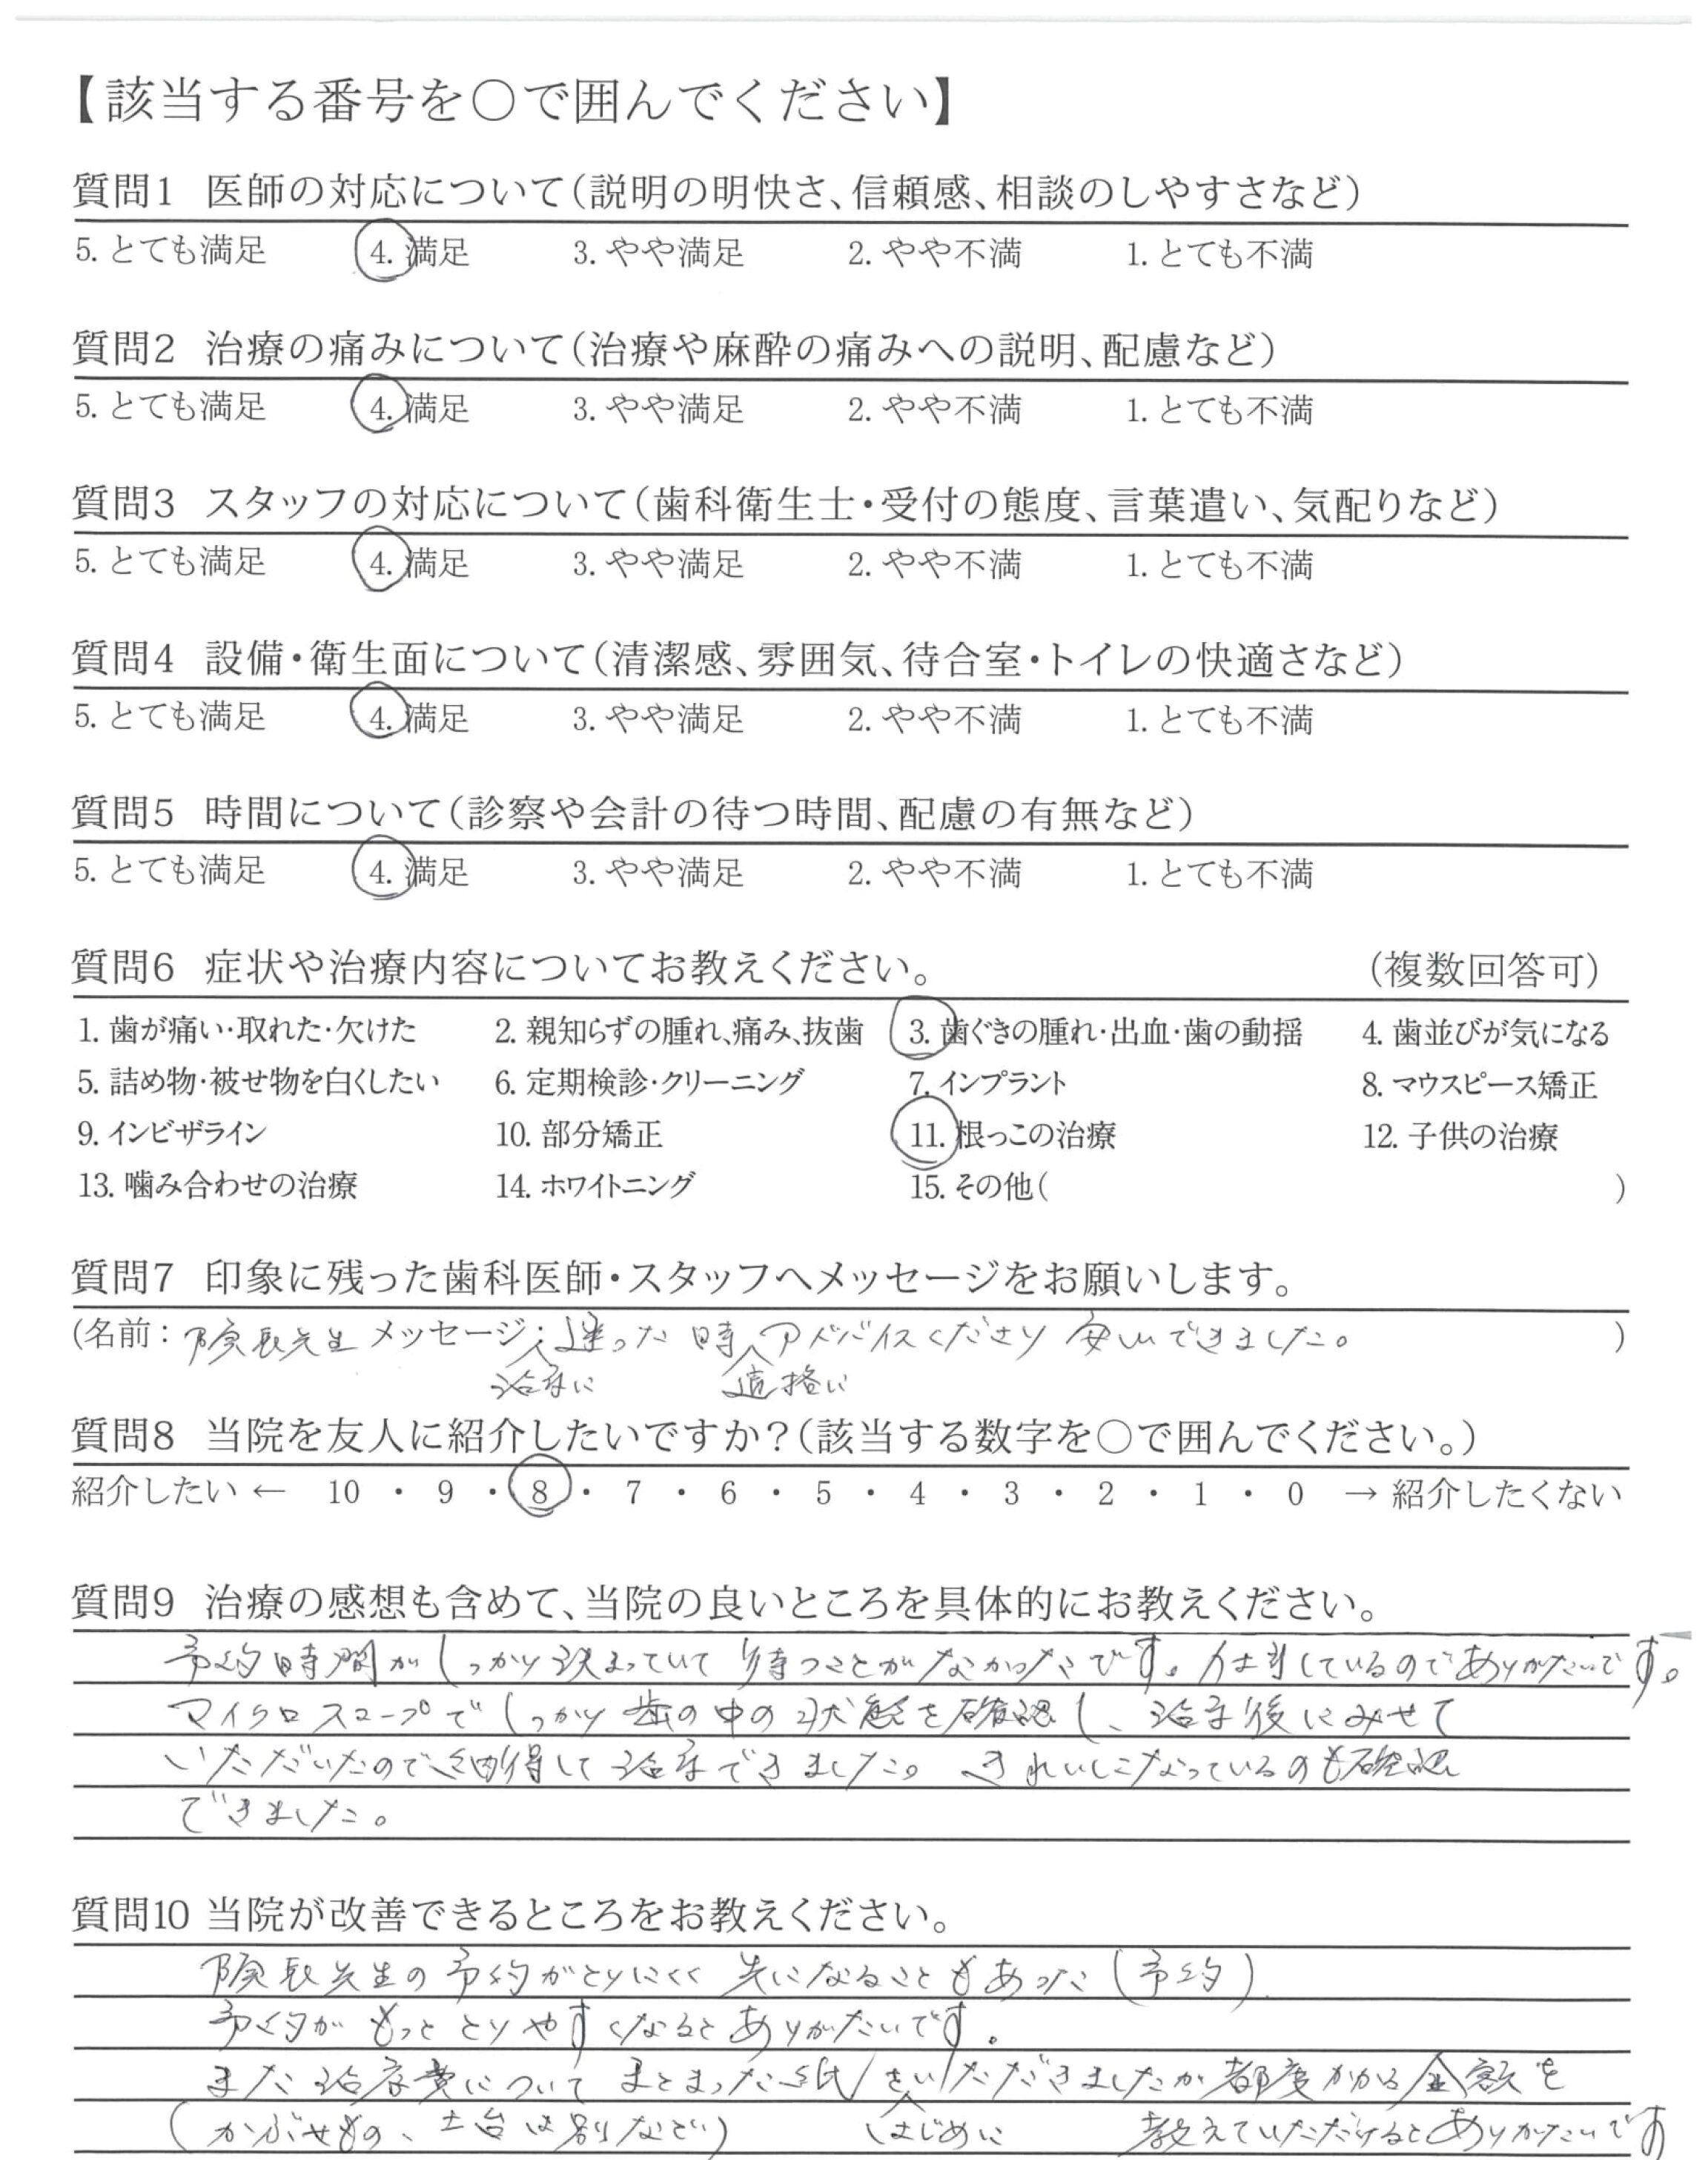 【該当する番号を○で囲んでください】
質問1 医師の対応について(説明の明快さ、信頼感、相談のしやすさなど)
5. とても満足 4. 満足 3. やや満足 2. やや不満 1. とても不満
質問2 治療の痛みについて(治療や麻酔の痛みへの説明、配慮など)
5. とても満足 4. 満足 3. やや満足 2. やや不満 1. とても不満
質問3 スタッフの対応について(歯科衛生士・受付の態度、言葉遣い、気配りなど)
5. とても満足 4. 満足 3. やや満足 2. やや不満 1. とても不満
質問4 設備・衛生面について(清潔感、雰囲気、待合室・トイレの快適さなど)
5. とても満足 4. 満足 3. やや満足 2. やや不満 1. とても不満
質問5 時間について(診察や会計の待つ時間、配慮の有無など)
5. とても満足 4. 満足 3. やや満足 2. やや不満 1. とても不満
質問6 症状や治療内容についてお教えください。 (複数回答可)
1. 歯が痛い・取れた・欠けた 2. 親知らずの腫れ、痛み、抜歯 3. 歯ぐきの腫れ・出血・歯の動揺 4. 歯並びが気になる
5. 詰め物・被せ物を白くしたい 6. 定期検診・クリーニング 7. インプラント 8. マウスピース矯正
9. インビザライン 10. 部分矯正 11. 根っこの治療 12. 子供の治療
13. 噛み合わせの治療 14. ホワイトニング 15. その他( )
質問7 印象に残った歯科医師・スタッフへメッセージをお願いします。
(名前: 院長先生 メッセージ: 迷った時 アドバイスくださり 安心できました。 )
治療に 適格に
質問8 当院を友人に紹介したいですか?(該当する数字を○で囲んでください。)
紹介したい ← 10 ・ 9 ・ 8 ・ 7 ・ 6 ・ 5 ・ 4 ・ 3 ・ 2 ・ 1 ・ 0 → 紹介したくない
質問9 治療の感想も含めて、当院の良いところを具体的にお教えください。
予約時間がしっかり決まっていて 待つことがなかったです。仕事しているのでありがたいです。
マイクロスコープでしっかり歯の中の状態を確認し、治療後にみせて
いただいたので納得して治療できました。きれいになっているのも確認
できました。
質問10 当院が改善できるところをお教えください。
院長先生の予約がとりにくく 先になることもあった(予約)
予約がもっととりやすくなるとありがたいです。
また治療費について まとまった紙をいただきましたが都度かかる金額を
(かぶせもの、土台は別など) はじめに 教えていただけるとありがたいです